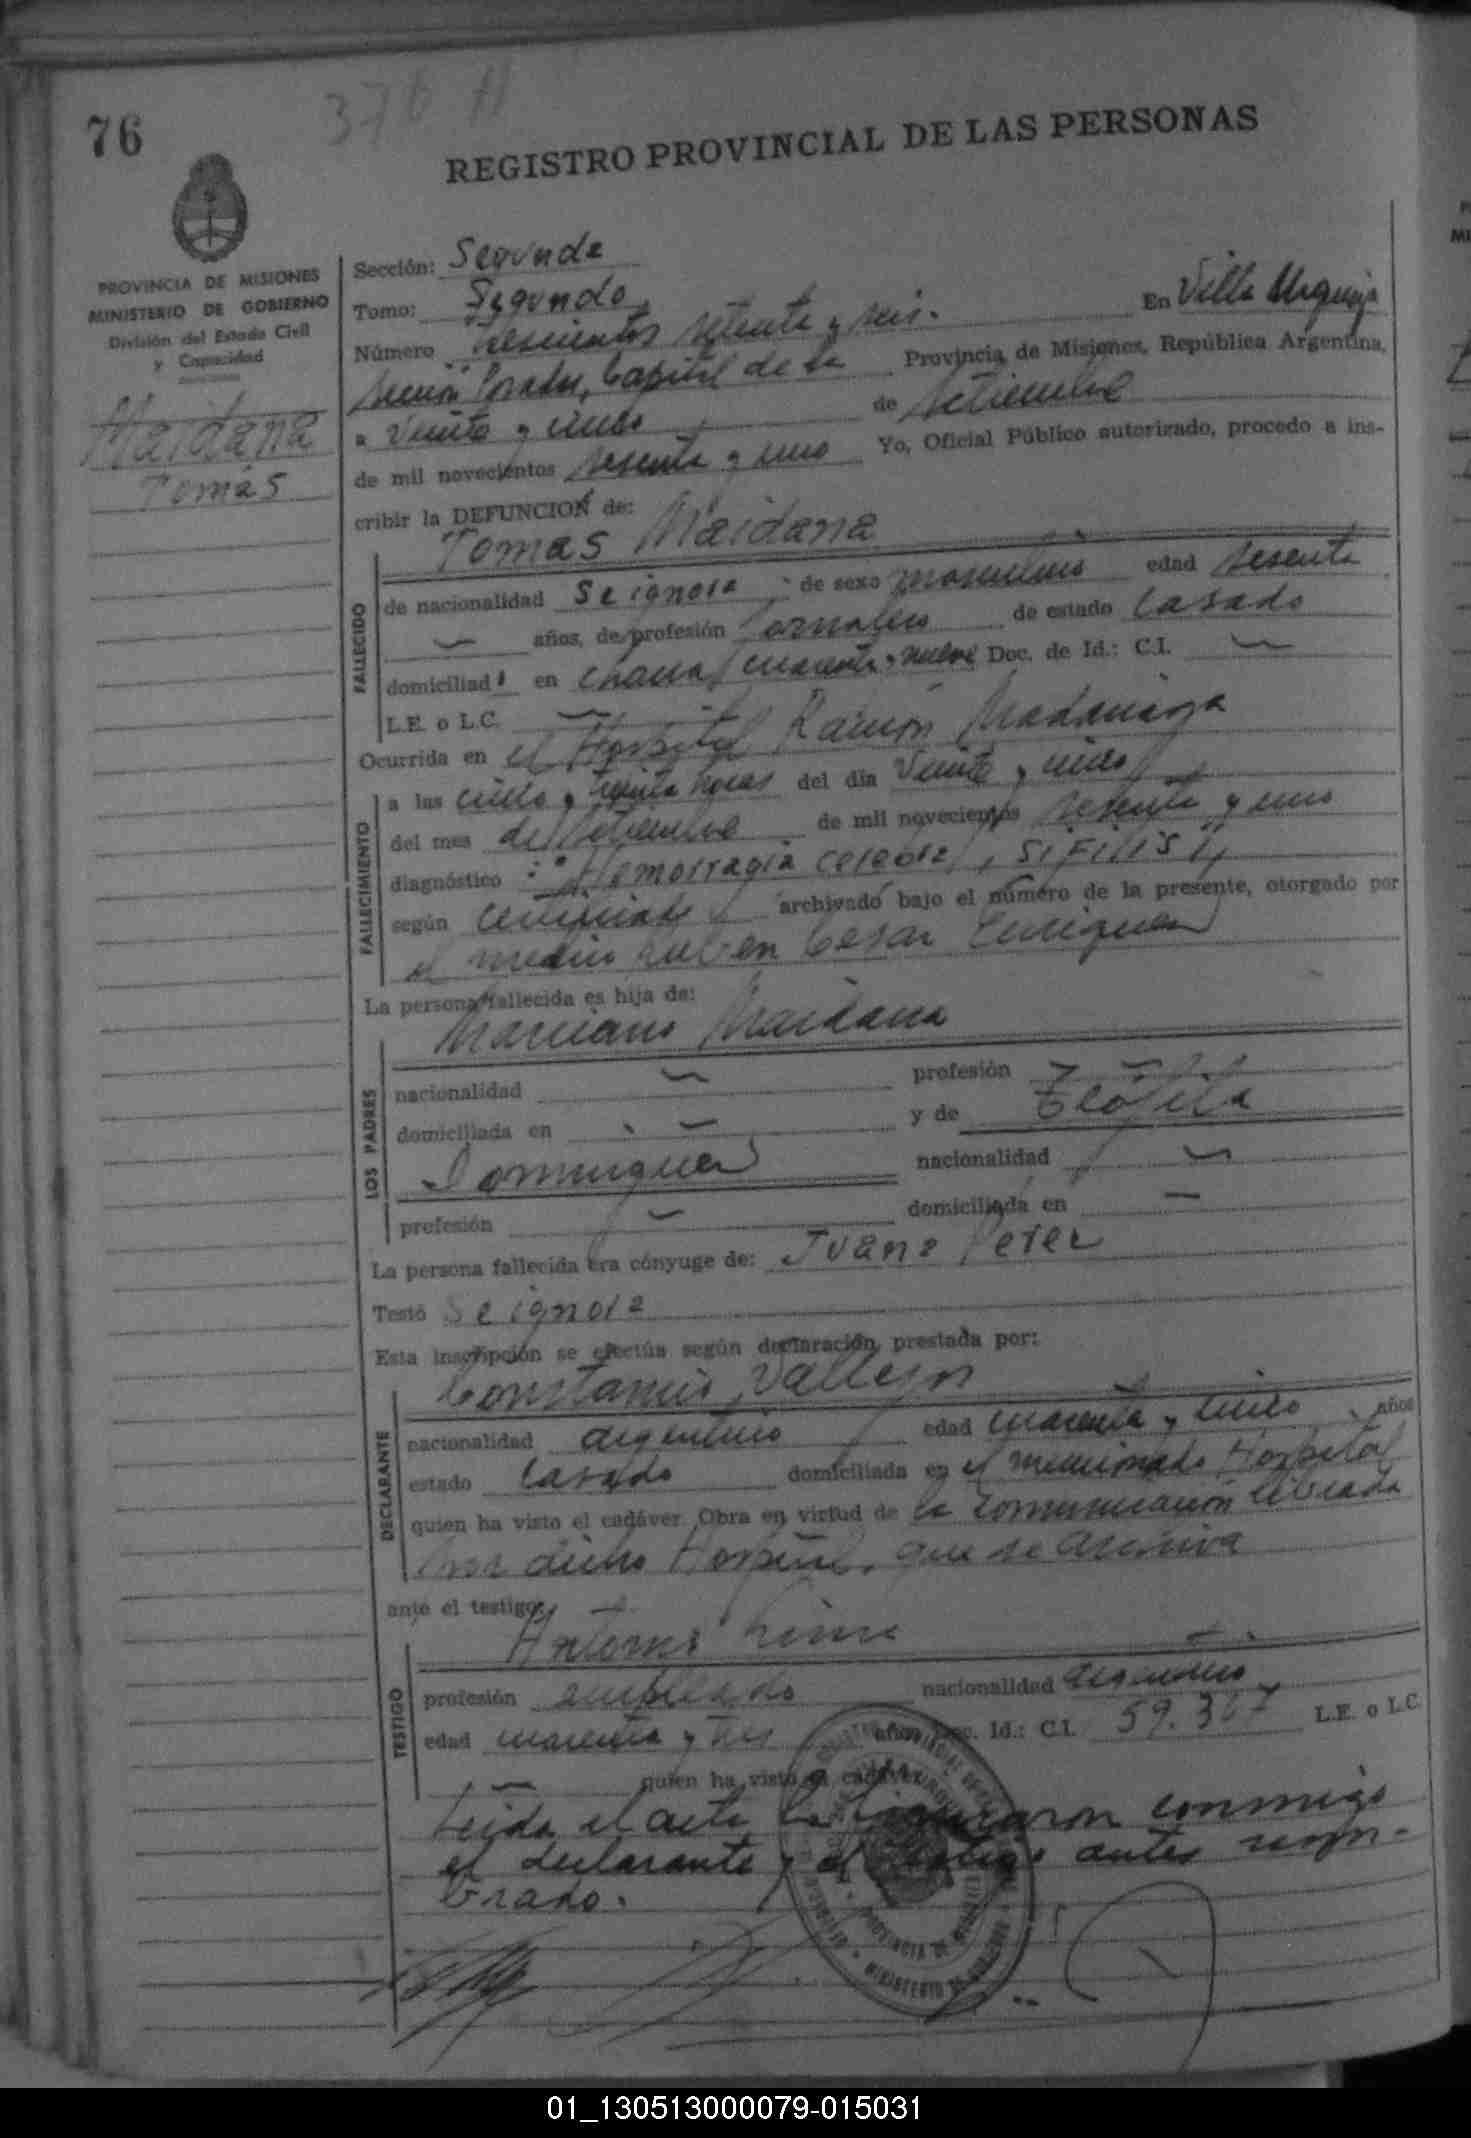 76
376 A
REGISTRO PROVINCIAL DE LAS PERSONAS
PROVINCIA DE MISIONES
MINISTERIO DE GOBIERNO
División del Estado Civil
y Capacidad
Maidana
Tomás
Sección: Segunda
Tomo: Segundo
Número trescientos setenta y seis. En Villa Urquiza
Sección Posadas, Capital de la Provincia de Misiones, República Argentina,
a veinte y cinco de setiembre
de mil novecientos sesenta y uno Yo, Oficial Público autorizado, procedo a ins-
cribir la DEFUNCION de:
Tomas Maidana
FALLECIDO
de nacionalidad se ignora de sexo masculino edad sesenta
años, de profesión Jornalero de estado casado
domiciliad en chacra cuarenta y nueve Doc. de Id.: C.I.
L.E. o L.C.
Ocurrida en el Hospital Ramón Madariaga
FALLECIMIENTO
a las cinco y treinta horas del día veinte y cinco
del mes de setiembre de mil novecientos sesenta y uno
diagnóstico Hemorragia cerebral, SIFILIS
según certificado archivado bajo el número de la presente, otorgado por
el medico Ruben Cesar Enriquez
La persona fallecida es hija de:
Marciano Maidana
LOS PADRES
nacionalidad profesión
domiciliada en y de Teófila
Dominguez nacionalidad
profesión domiciliada en
La persona fallecida era cónyuge de: Juana Perez
Testó Se ignora
Esta inscripción se efectúa según declaración prestada por:
Constancio Vallejos
DECLARANTE
nacionalidad argentino edad cuarenta y cinco años
estado casado domiciliada en el mencionado Hospital
quien ha visto el cadáver. Obra en virtud de la comunicación librada
por dicho Hospital, que se archiva
ante el testigo:
Antonio
TESTIGO
profesión empleado nacionalidad argentino
edad cuarenta y tres años Doc. Id.: C.I. 59.367 L.E. o L.C.
quien ha visto el cadáver.
Leída el acta la firmaron conmigo
el declarante y el testigo antes nom-
brado.
PROVINCIA DE MISIONES
MINISTERIO DE GOBIERNO
01_130513000079-015031